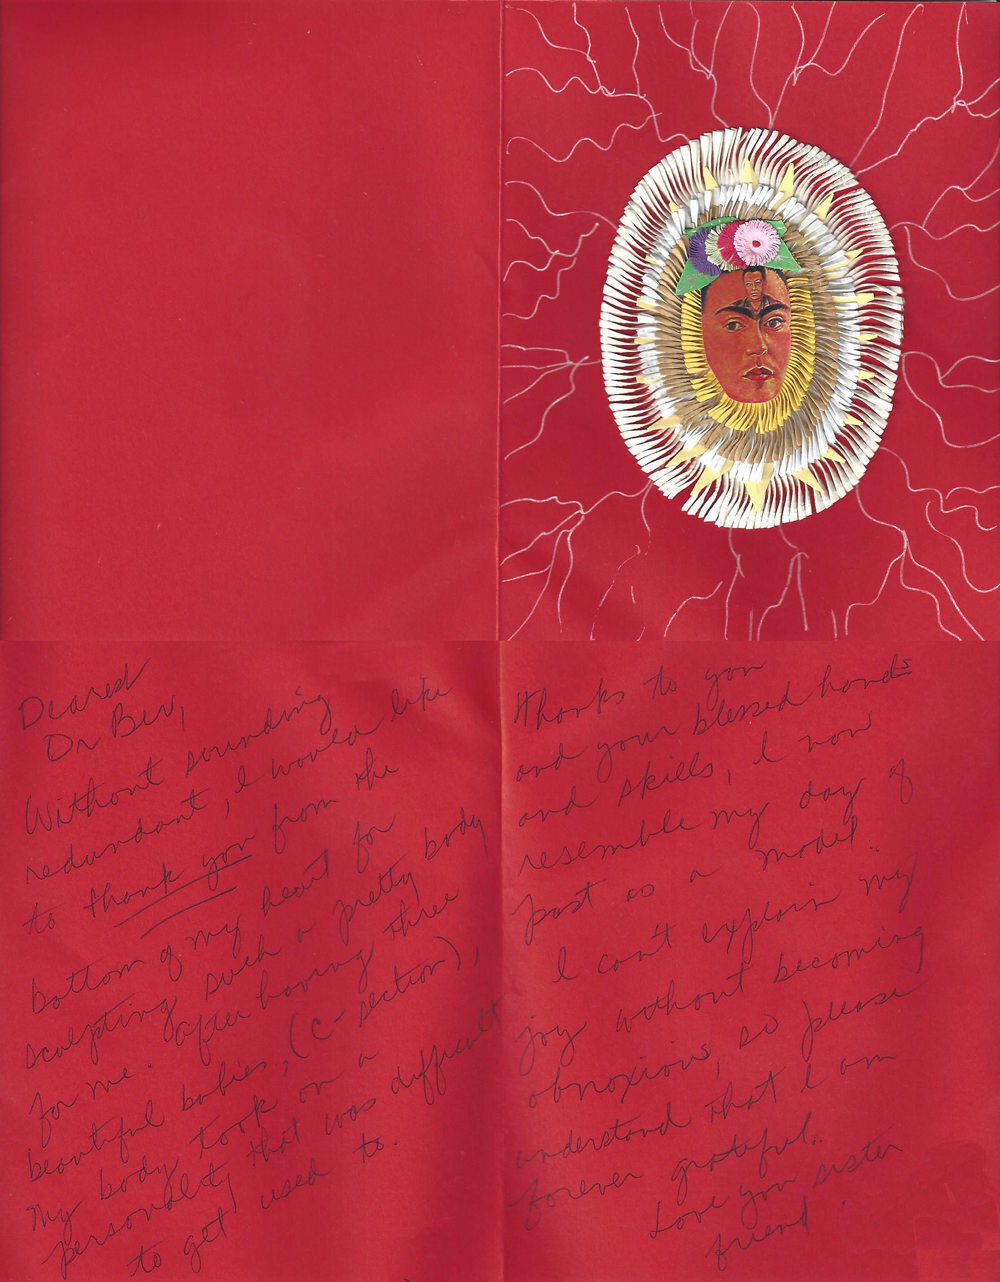 Dearest
Dr Bev,
Without sounding
redundant, I would like
to thank you from the
bottom of my heart for
sculpting such a pretty body
for me. After having three
beautiful babies, (C-section),
my body took on a
personality that was difficult
to get used to.
Thanks to you
and your blessed hands
and skills, I now
resemble my day of
past as a model.
I can't explain my
joy without becoming
obnoxious, so please
understand that I am
forever grateful.
Love you sister
friend.